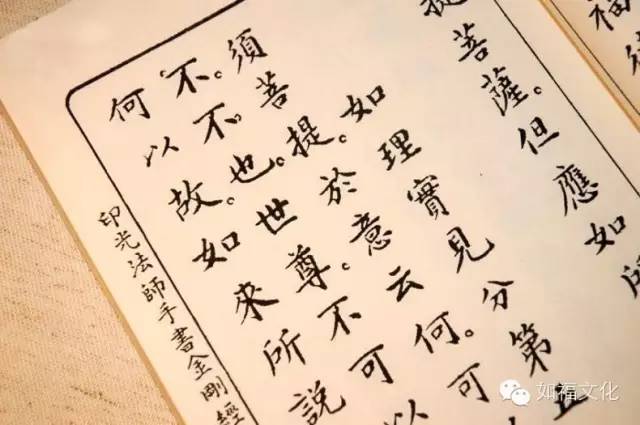 福
提菩薩。但應如所
如理實見分第五
須菩提。於意云何。可
不。不也。世尊。不可以
何以故。如來所說
印光法師手書金剛經
如福文化